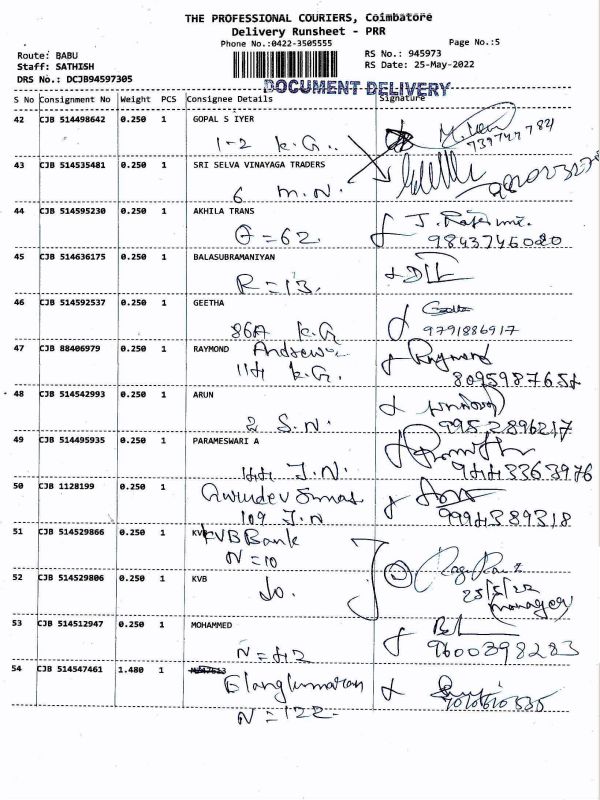 THE PROFESSIONAL COURIERS, Coimbatore
Delivery Runsheet - PRR
Phone No.:0422-3505555
Page No.:5
Route: BABU
RS No.: 945973
Staff: SATHISH
RS Date: 25-May-2022
DRS No.: DCJB94597305
DOCUMENT DELIVERY
S No Consignment No Weight PCS Consignee Details Signature
42 CJB 514498642 0.250 1 GOPAL S IYER
1-2 K.G.
43 CJB 514535481 0.250 1 SRI SELVA VINAYAGA TRADERS
6 M.N.
44 CJB 514595230 0.250 1 AKHILA TRANS
G=62
9843746020
45 CJB 514636175 0.250 1 BALASUBRAMANIYAN
R=13.
46 CJB 514592537 0.250 1 GEETHA
86A K.G
9791886917
47 CJB 88406979 0.250 1 RAYMOND Andrew
114 K.G. Raymond
48 CJB 514542993 0.250 1 ARUN
2 S.N. 9952896217
49 CJB 514495935 0.250 1 PARAMESWARI A
144 J.N. 9443363976
50 CJB 1128199 0.250 1 Gurudev
109 J.N 9994389318
51 CJB 514529866 0.250 1 KVB Bank
N=10
52 CJB 514529806 0.250 1 KVB
do. 25/5/22
manager
53 CJB 514512947 0.250 1 MOHAMMED
N=42 9600398283
54 CJB 514547461 1.480 1
Elangkumaran
N=122